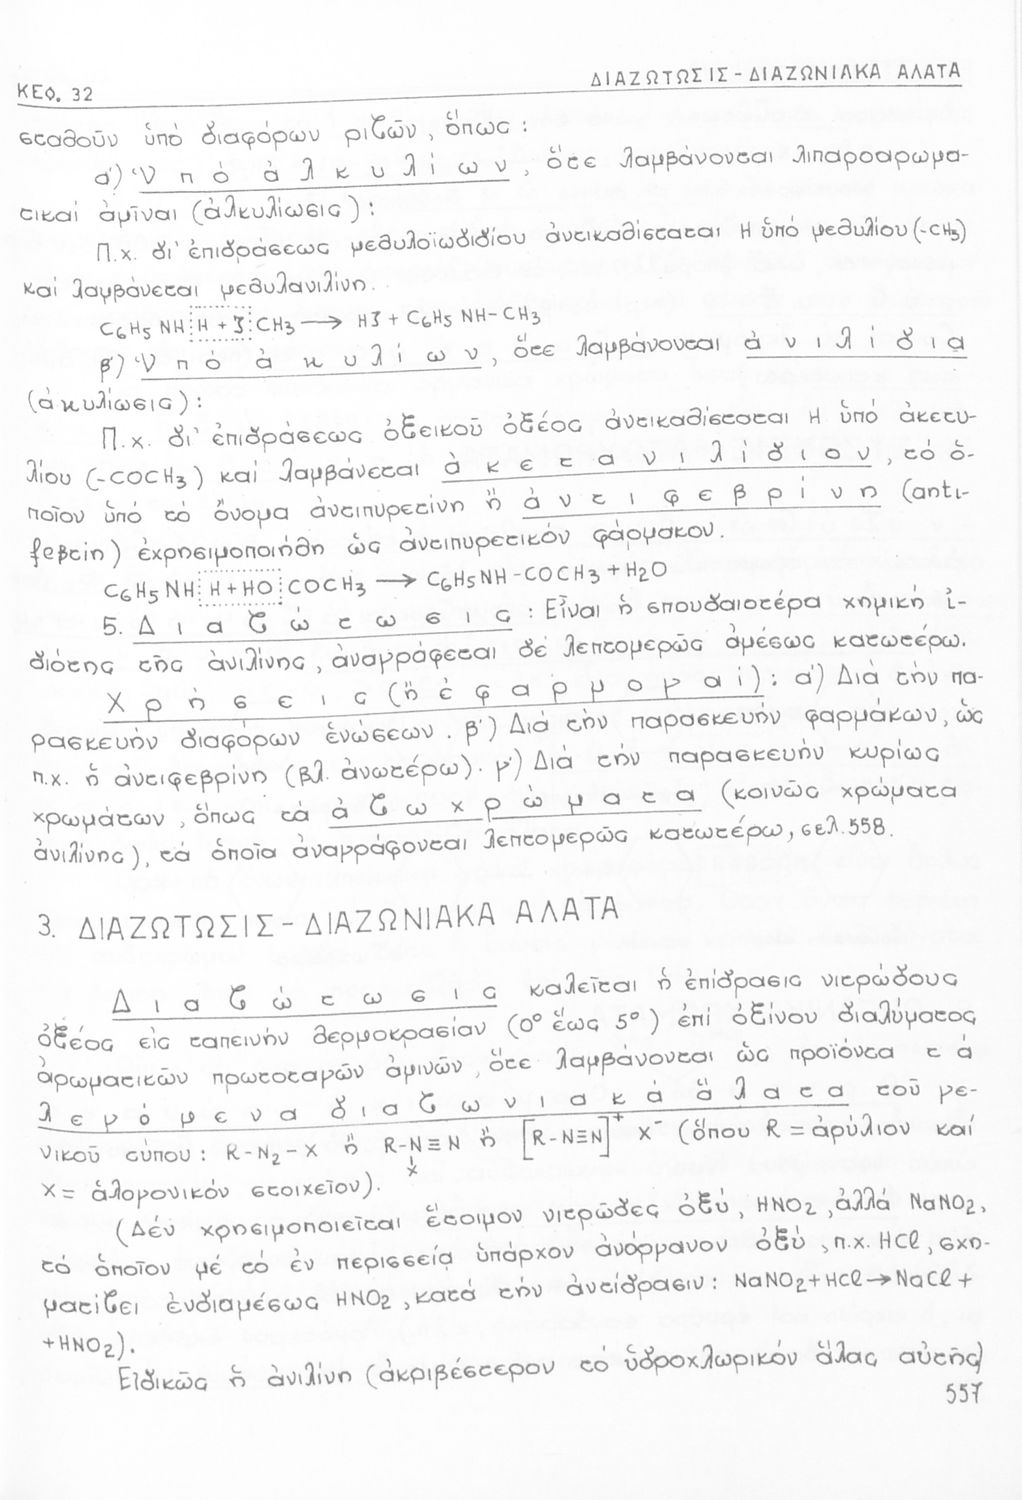 ΚΕΦ. 32
ΔΙΑΖΩΤΩΣΙΣ - ΔΙΑΖΩΝΙΑΚΑ ΑΛΑΤΑ
σταθοῦν ὑπό διαφόρων ριζῶν, ὅπως :
α') Ὑπό ἀλκυλίων, ὅτε λαμβάνονται λιπαροαρωμα-
τικαί ἀμῖναι (ἀλκυλίωσις) :
Π.χ. δι' ἐπιδράσεως μεθυλοϊωδιδίου ἀντικαθίσταται Η ὑπό μεθυλίου (-CH3)
καί λαμβάνεται μεθυλανιλίνη.
C6H5 NH H + J CH3 → HJ + C6H5 NH-CH3
β') Ὑπό ἀκυλίων, ὅτε λαμβάνονται ἀνιλίδια
(ἀκυλίωσις) :
Π.χ. δι' ἐπιδράσεως ὀξεικοῦ ὀξέος ἀντικαθίσταται Η ὑπό ἀκετυ-
λίου (-COCH3) καί λαμβάνεται ἀκετανιλίδιον, τό ὁ-
ποῖον ὑπό τό ὄνομα ἀντιπυρετίνη ἤ ἀντιφεβρίνη (anti-
febrin) ἐχρησιμοποιήθη ὡς ἀντιπυρετικόν φάρμακον.
C6H5 NH H + HO COCH3 → C6H5NH-COCH3 + H2O
5. Διαζώτωσις : Εἶναι ἡ σπουδαιοτέρα χημική ἰ-
διότης τῆς ἀνιλίνης, ἀναγράφεται δέ λεπτομερῶς ἀμέσως κατωτέρω.
Χρήσεις (ἤ ἐφαρμογαί) : α') Διά τήν πα-
ρασκευήν διαφόρων ἑνώσεων. β') Διά τήν παρασκευήν φαρμάκων, ὡς
π.χ. ἡ ἀντιφεβρίνη (βλ. ἀνωτέρω). γ') Διά τήν παρασκευήν κυρίως
χρωμάτων, ὅπως τά ἀζωχρώματα (κοινῶς χρώματα
ἀνιλίνης), τά ὁποῖα ἀναγράφονται λεπτομερῶς κατωτέρω, σελ. 558.
3. ΔΙΑΖΩΤΩΣΙΣ - ΔΙΑΖΩΝΙΑΚΑ ΑΛΑΤΑ
Διαζώτωσις καλεῖται ἡ ἐπίδρασις νιτρώδους
ὀξέος εἰς ταπεινήν θερμοκρασίαν (0° ἕως 5°) ἐπί ὀξίνου διαλύματος
ἀρωματικῶν πρωτοταγῶν ἀμινῶν, ὅτε λαμβάνονται ὡς προϊόντα τά
λεγόμενα διαζωνιακά ἅλατα τοῦ γε-
νικοῦ τύπου : R-N2-X ἤ R-N≡N ἤ [R-N≡N]+ X- (ὅπου R = ἀρύλιον καί
X
X = ἁλογονικόν στοιχεῖον).
(Δέν χρησιμοποιεῖται ἕτοιμον νιτρῶδες ὀξύ, HNO2, ἀλλά NaNO2,
τό ὁποῖον μέ τό ἐν περισσείᾳ ὑπάρχον ἀνόργανον ὀξύ, π.χ. HCl, σχη-
ματίζει ἐνδιαμέσως HNO2, κατά τήν ἀντίδρασιν : NaNO2+HCl→NaCl+
+HNO2).
Εἰδικῶς ἡ ἀνιλίνη (ἀκριβέστερον τό ὑδροχλωρικόν ἅλας αὐτῆς)
557